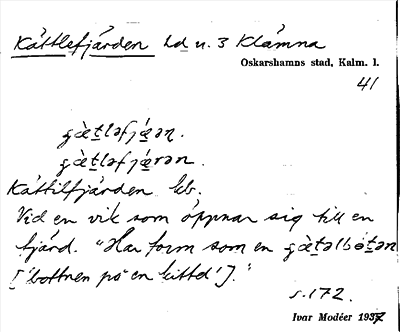 Kättlefjärden ld u. 3 Klämna
Oskarshamns stad, Kalm. l.
41
gæ̀tləfjǽ̣ən.
gæ̀tləfjǽ̣rən.
Kättilfjärden kb.
Vid en vik som öppnar sig till en
fjärd. "Har form som en gæ̀təlbótən
['bottnen på en kittel']."
s. 172.
Ivar Modéer 1937